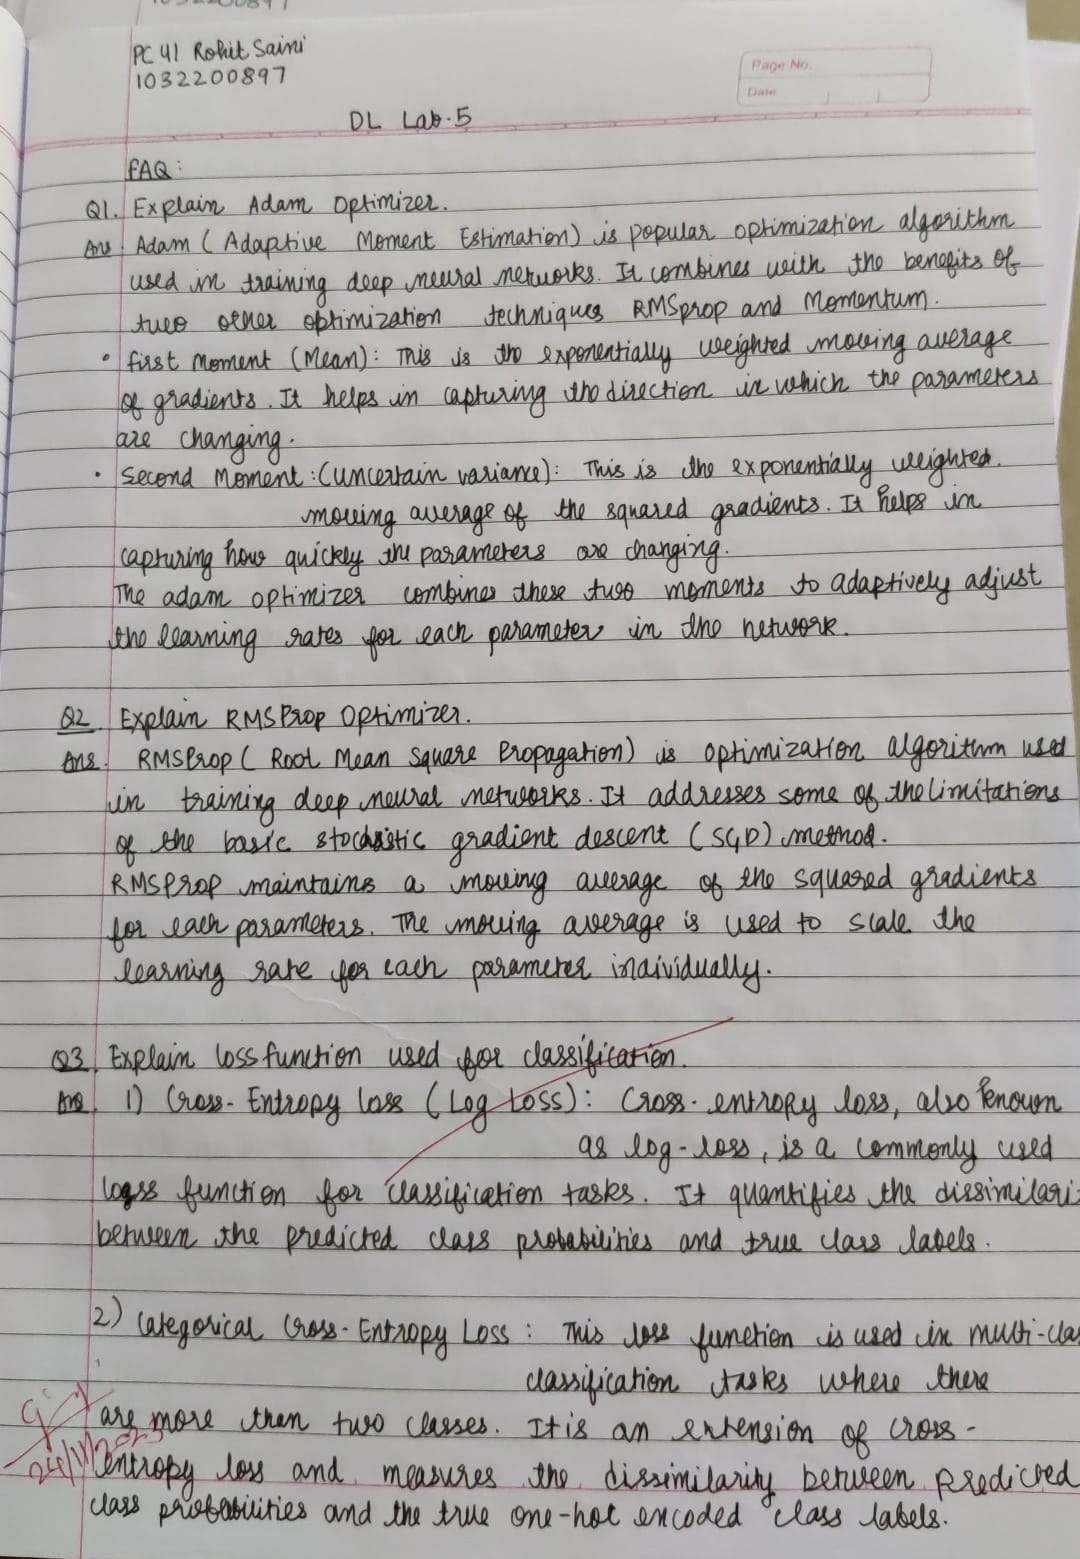 PC 41 Rohit Saini
1032200897
Page No.
Date
DL Lab.5
FAQ:
Q1. Explain Adam Optimizer.
Ans. Adam (Adaptive Moment Estimation) is popular optimization algorithm
used in training deep neural networks. It combines with the benefits of
two other optimization techniques RMSprop and Momentum.
• first Moment (Mean): This is the exponentially weighted moving average
of gradients. It helps in capturing the direction in which the parameters
are changing.
• Second Moment: (Uncertain variance): This is the exponentially weighted.
moving average of the squared gradients. It helps in
capturing how quickly the parameters are changing.
The adam optimizer combines these two moments to adaptively adjust
the learning rates for each parameter in the network.
Q2 Explain RMSProp Optimizer.
Ans. RMSProp (Root Mean Square Propagation) is optimization algorithm used
in training deep neural networks. It addresses some of the limitations
of the basic stochastic gradient descent (SGD) method.
RMSProp maintains a moving average of the squared gradients
for each parameters. The moving average is used to scale the
learning rate for each parameter individually.
Q3. Explain loss function used for classification.
Ans. 1) Cross-Entropy loss (Log Loss): Cross-entropy loss, also known
as log-loss, is a commonly used
loss function for classification tasks. It quantifies the dissimilari
between the predicted class probabilities and true class labels.
2) Categorical Cross-Entropy Loss: This loss function is used in multi-clas
classification tasks where there
are more then two classes. It is an extension of cross-
entropy loss and measures the dissimilarity between predicted
class probabilities and the true one-hot encoded class labels.